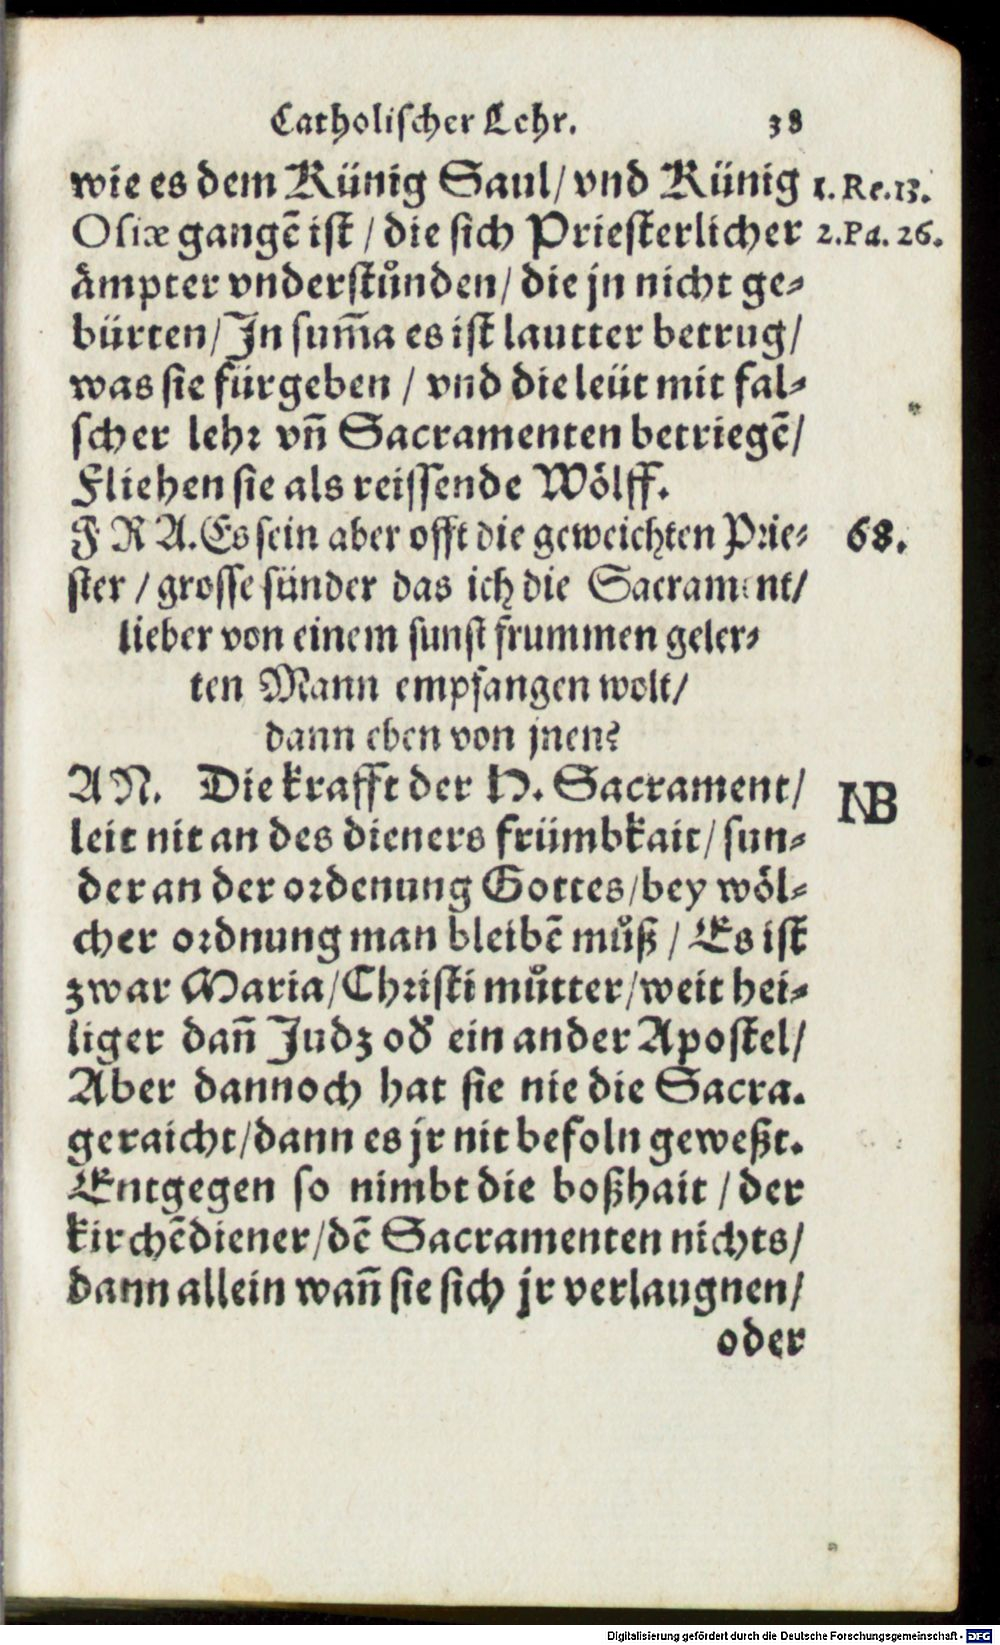 Catholischer Lehr. 38
wie es dem Künig Saul/ vnd Künig 1. Re. 13.
Osiæ gangẽ ist / die sich Priesterlicher 2. Pa. 26.
ämpter vnderstůnden/ die jn nicht ge⸗
bürten/ In sum̃a es ist lautter betrug/
was sie fürgeben / vnd die leüt mit fal⸗
scher lehr vñ Sacramenten betriegẽ/
Fliehen sie als reissende Wölff.
F R A. Es sein aber offt die geweichten Prie⸗ 68.
ster / grosse sünder das ich die Sacrament/
lieber von einem sunst frummen geler⸗
ten Mann empfangen wolt/
dann eben von jnen?
A N. Die krafft der H. Sacrament/ NB
leit nit an des dieners frümbkait/ sun⸗
der an der ordenung Gottes/ bey wöl⸗
cher ordnung man bleibẽ můß / Es ist
zwar Maria/ Christi můtter/ weit hei⸗
liger dañ Judz od̃ ein ander Apostel/
Aber dannoch hat sie nie die Sacra.
geraicht/ dann es jr nit befoln geweßt.
Entgegen so nimbt die boßhait / der
kirchẽdiener/ dẽ Sacramenten nichts/
dann allein wañ sie sich jr verlaugnen/
oder
Digitalisierung gefördert durch die Deutsche Forschungsgemeinschaft - DFG